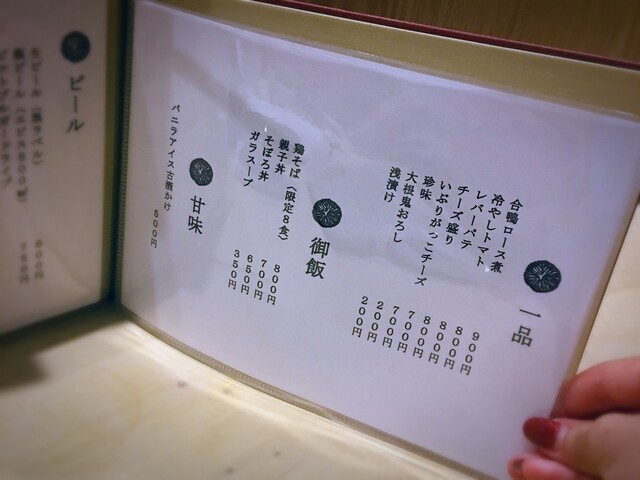 一品
合鴨ロース煮 900円
冷やしトマト 800円
レバーパテ 800円
チーズ盛り 800円
いぶりがっこチーズ 700円
珍味 700円
大根鬼おろし 200円
浅漬け 200円
御飯
鶏そば〈限定8食〉 800円
親子丼 700円
そぼろ丼 650円
ガラスープ 350円
甘味
バニラアイス古酒かけ 500円
ビール
生ビール〈黒ラベル〉 600円
瓶ビール